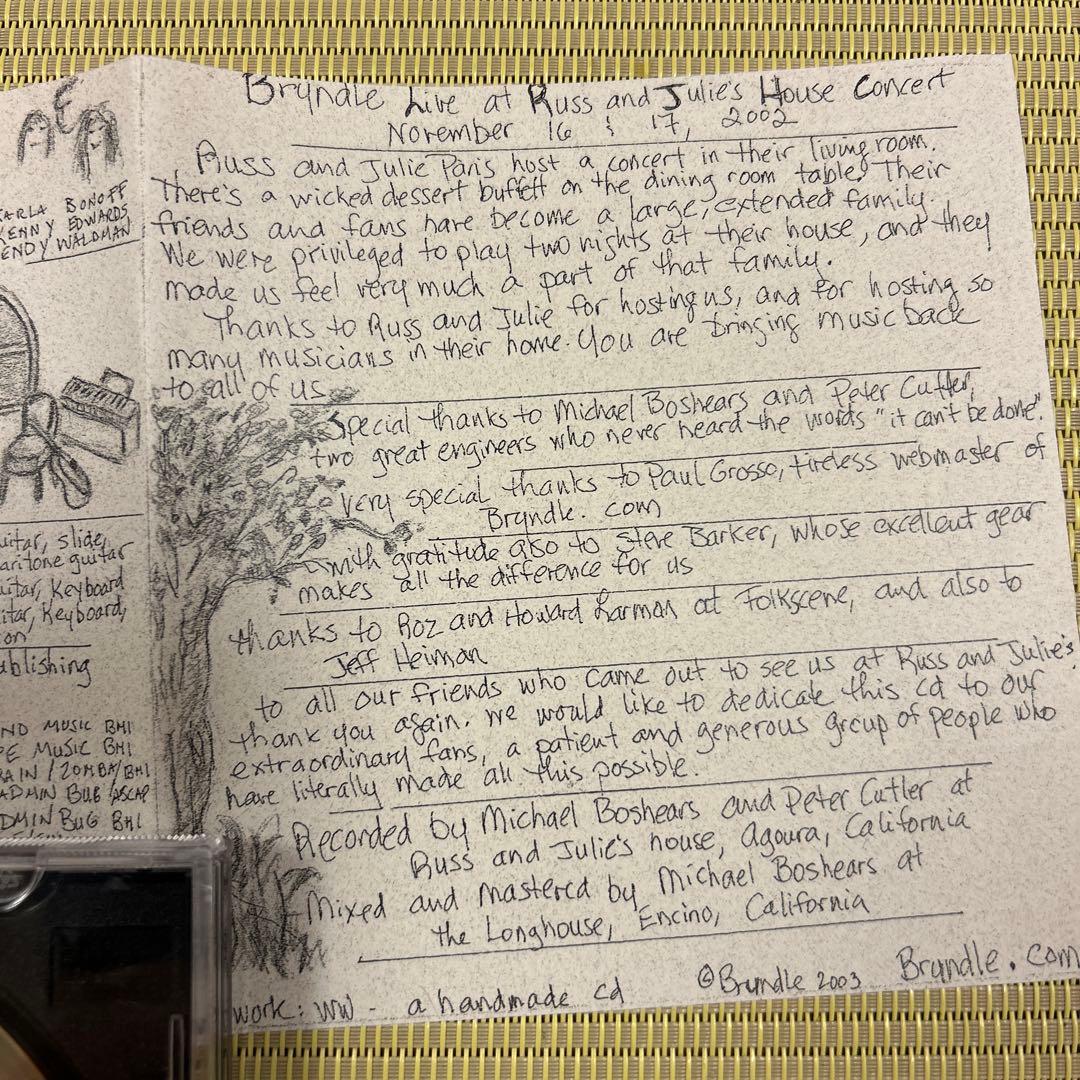 KARLA BONOFF
KENNY EDWARDS
WENDY WALDMAN
guitar, slide,
baritone guitar
guitar, keyboard
guitar, keyboard,
publishing
MUSIC BMI
MUSIC BMI
/ZOMBA/BMI
ADMIN BUG/ASCAP
ADMIN BUG BMI
Bryndle Live at Russ and Julie's House Concert
November 16 & 17, 2002
Russ and Julie Paris host a concert in their living room.
There's a wicked dessert buffett on the dining room table. Their
friends and fans have become a large, extended family.
We were privileged to play two nights at their house, and they
made us feel very much a part of that family.
Thanks to Russ and Julie for hosting us, and for hosting so
many musicians in their home. You are bringing music back
to all of us.
Special thanks to Michael Boshears and Peter Cutler,
two great engineers who never heard the words "it can't be done".
very special thanks to Paul Grosso, tireless webmaster of
Bryndle.com
with gratitude also to Steve Barker, whose excellent gear
makes all the difference for us
thanks to Roz and Howard Larman at Folkscene, and also to
Jeff Heiman
to all our friends who came out to see us at Russ and Julie's
thank you again. we would like to dedicate this cd to our
extraordinary fans, a patient and generous group of people who
have literally made all this possible.
Recorded by Michael Boshears and Peter Cutler at
Russ and Julie's house, Agoura, California
Mixed and mastered by Michael Boshears at
the Longhouse, Encino, California
work: WW - a handmade cd
©Bryndle 2003
Bryndle.com